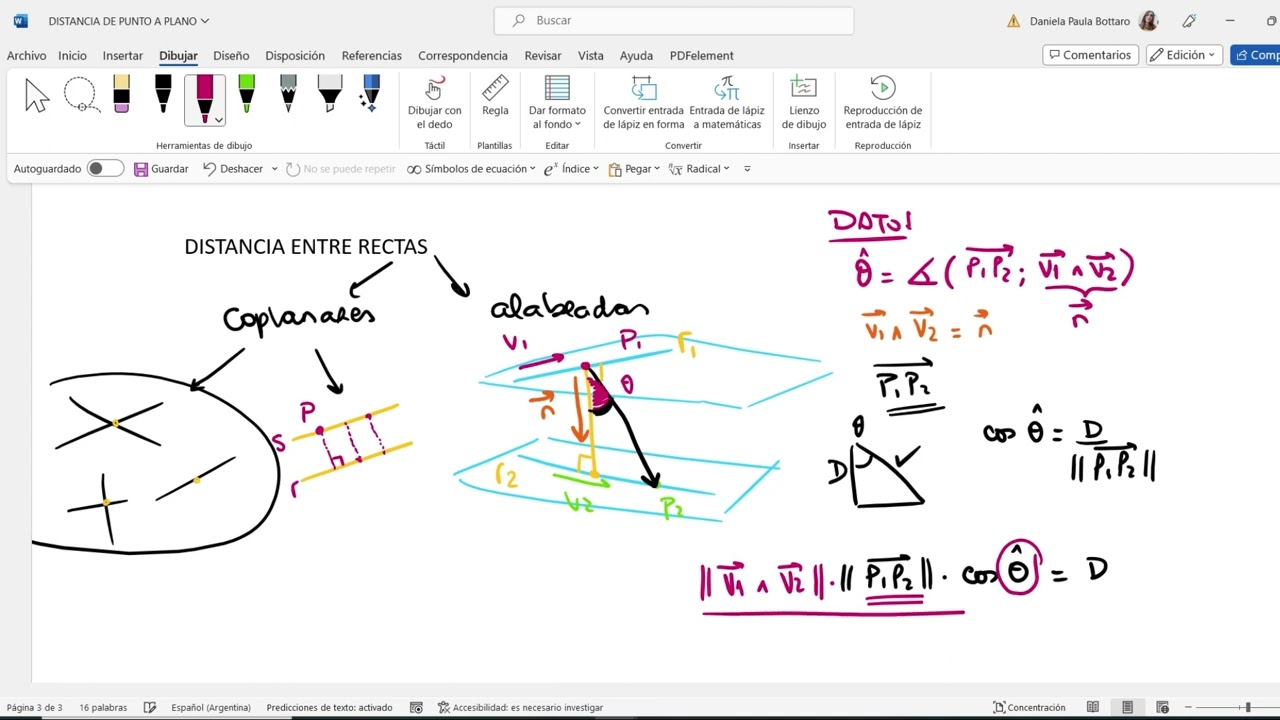 DISTANCIA DE PUNTO A PLANO
Buscar
Daniela Paula Bottaro
Archivo Inicio Insertar Dibujar Diseño Disposición Referencias Correspondencia Revisar Vista Ayuda PDFelement
Comentarios Edición Comp
Dibujar con el dedo
Regla
Dar formato al fondo
Convertir entrada de lápiz en forma
Entrada de lápiz a matemáticas
Lienzo de dibujo
Reproducción de entrada de lápiz
Herramientas de dibujo Táctil Plantillas Editar Convertir Insertar Reproducción
Autoguardado Guardar Deshacer No se puede repetir Símbolos de ecuación Índice Pegar Radical
DISTANCIA ENTRE RECTAS
Coplanares
alabeadas
P
s
r
V1
P1
r1
θ
n⃗
r2
V2
P2
DATOS
θ̂ = ∡( P1P2⃗ ; v1⃗ ∧ v2⃗ )
n⃗
v1⃗ ∧ v2⃗ = n⃗
P1P2⃗
θ
D
cos θ̂ = D / ||P1P2⃗||
||v1⃗ ∧ v2⃗|| · ||P1P2⃗|| · cos θ̂ = D
Página 3 de 3 16 palabras Español (Argentina) Predicciones de texto: activado Accesibilidad: es necesario investigar Concentración